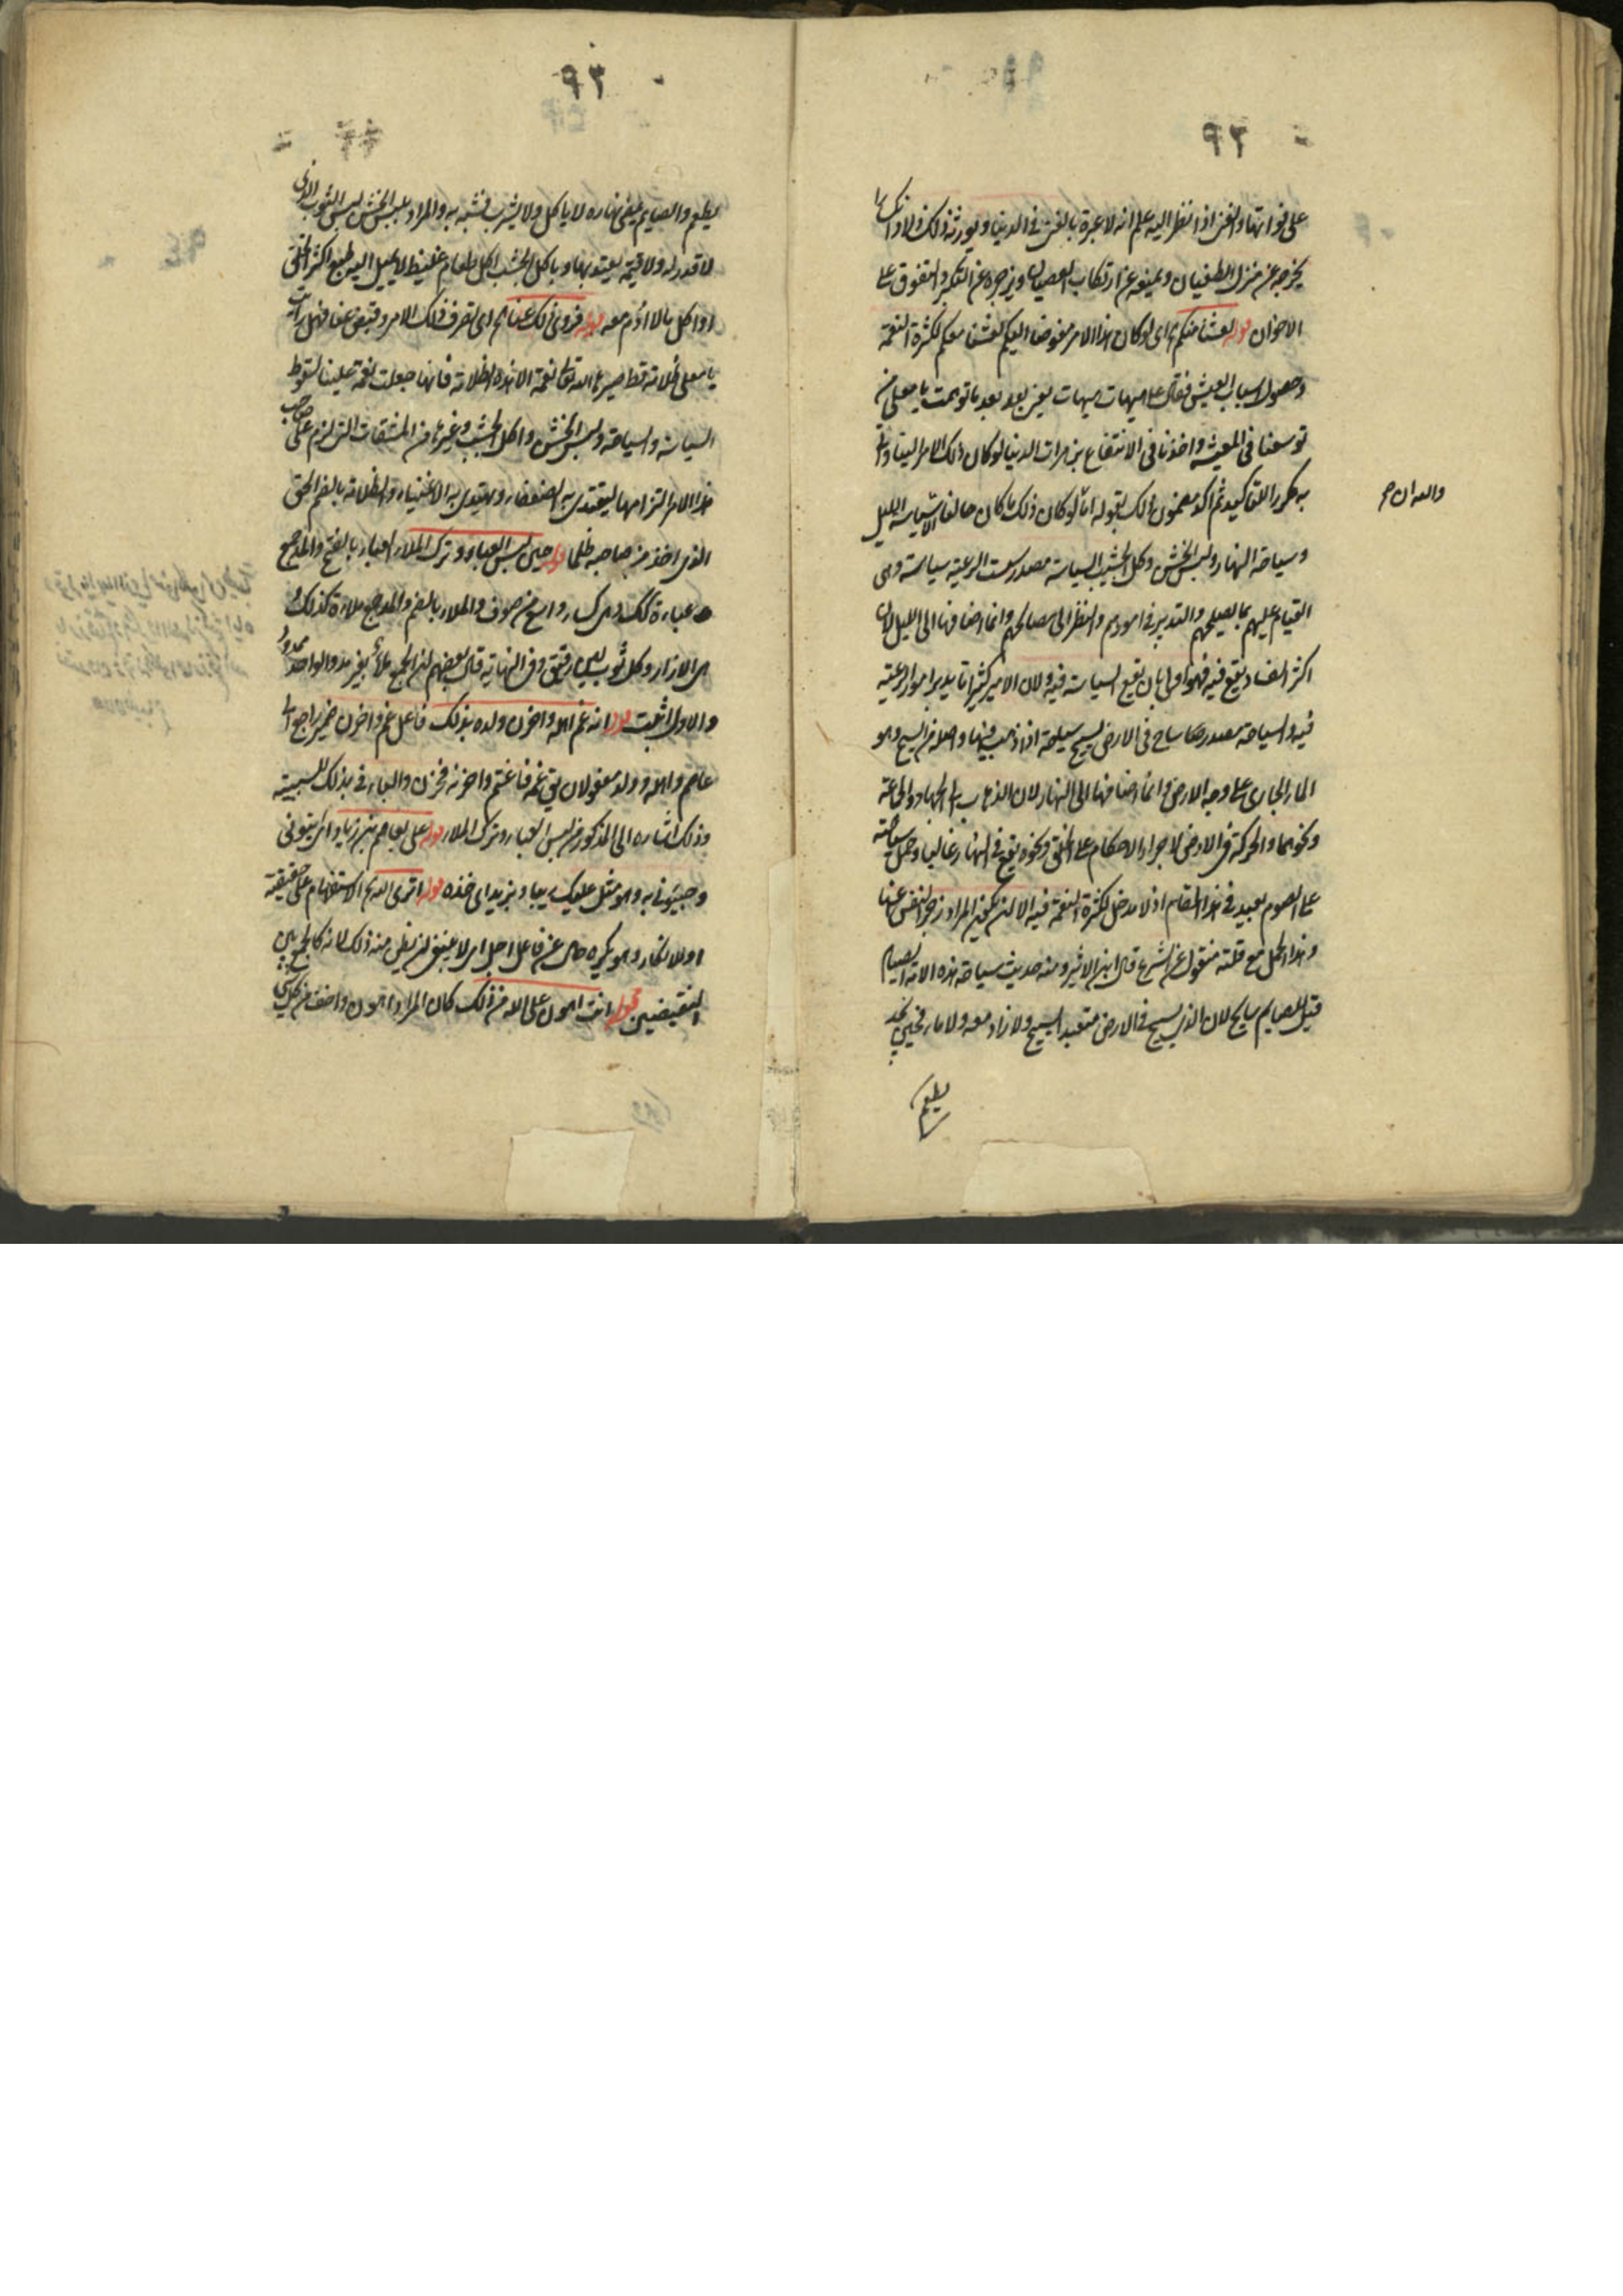 ٩٣
على فواتها والغنى اذا نظر اليه علم انه لا عبرة بالغنى في الدنيا ويورثه ذلك
يخرجه عن منزل الطغيان ويمنعه عن ارتكاب العصيان ويزجره عن التكبر والتفوق على
الاخوان قوله لعشنا معكم اى لو كان هذا الامر مفوضا اليكم لعشنا معكم لكثرة النعمة
وحصول اسباب العيش فقال على هيهات هيهات يعنى بعد بعد ما توهمت يا معلى من
توسعنا في المعيشه واخذنا في الانتفاع من مرات الدنيا لو كان ذلك الامر الينا
به مكررا للتاكيد ثم اكد مضمون ذلك بقوله اما لو كان ذلك ما كان حالنا الا سياسة الليل
والله ان
وسياحة النهار ولبس الخشن وكل الجشب السياسة مصدر سست الرعية سياسة وهى
القيام عليهم بما يصلحهم والتدبير في امورهم والنظر الى مصالحهم وانما اضافها الى الليل لان
اكثر الفساد يقع فيه فهو اولى بان يقع السياسة فيه ولان الامير كثيرا ما يدبر امور الرعية
فيه والسياحة مصدر ساح في الارض يسيح سياحة اذا ذهب فيها واصله من السيح وهو
الماء الجارى على وجه الارض وانما اضافها الى النهار لان الذهاب الى الجهاد والجماعة
ونحوهما والحركة في الارض لاجراء الاحكام على الخلق ونحوه يقع في النهار غالبا وحمل سياحته
على الصوم بعيد في هذا المقام اذ لا مدخل لكثرة النعمة فيه الا ان يكون المراد زجر النفس عنها
وهذا الحمل مع قلته منقول عن الشرع قال ابن الاثير ومنه حديث سياحة هذه الامة الصيام
قيل للصايم سايح لان الذى يسيح في الارض متعبدا يسيح ولا زاد معه ولا ماء فحين يجد
يطعم
٩٣
يطعم والصايم يمضى نهاره لا ياكل ولا يشرب فشبه به والمراد بلبس الخشن لبس الثوب الذى
لا قدر له ولا قيمة يعتد بها وباكل الجشب اكل طعام غليظ لا يميل اليه طبع اكثر الخلق
او اكل ما لا ادم معه قوله فزوى ذلك عنا اى صرف ذلك الامر وقبض عنا فهل رايت
يا معلى ظلامة قط صيرها الله تعالى نعمة الا هذه الظلامة فانها جعلت نعمة علينا لسقوط
السياسة والسياحة ولبس الخشن واكل الجشب وغيرها من المشقات التى لزم على صاحب
هذا الامر التزامها ليقتدى به الضعفاء ويهتدى به الاغنياء والظلامة بالضم الحق
الذى اخذ من صاحبه ظلما قوله حين لبس العباء وترك الملاء العباء بالفتح والمد جمع
عباءة كذلك وهى كساء واسع من صوف والملاء بالضم والمد جمع ملاءة كذلك
هى الازار وكل ثوب لين رقيق وفي النهاية قال بعضهم ان الجمع ملأ بغير مد والواحد ممدود
والاول اثبت قوله انه غم اهله واحزن ولده بذلك فاعل غم واحزن ضمير راجع الى
عاصم واهله وولده مفعولان يق غمه فاغتم واحزنه فحزن والباء في بذلك للسببية
وذلك اشاره الى المذكور من لبس العباء وترك الملاء قوله على بعاصم بن زياد اى يتونى
وجيئونى به وهو مثل عليك بيد او بزيد اى خذه قوله اترى الله الاستفهام على حقيقته
او للانكار وهو يكره حال عن فاعل احل اى لا ينبغى ان يظن منه ذلك لانه كالجمع بين
النقيضين قوله انت اهون على الله من ذلك كان المراد اهون واخف من كل شى